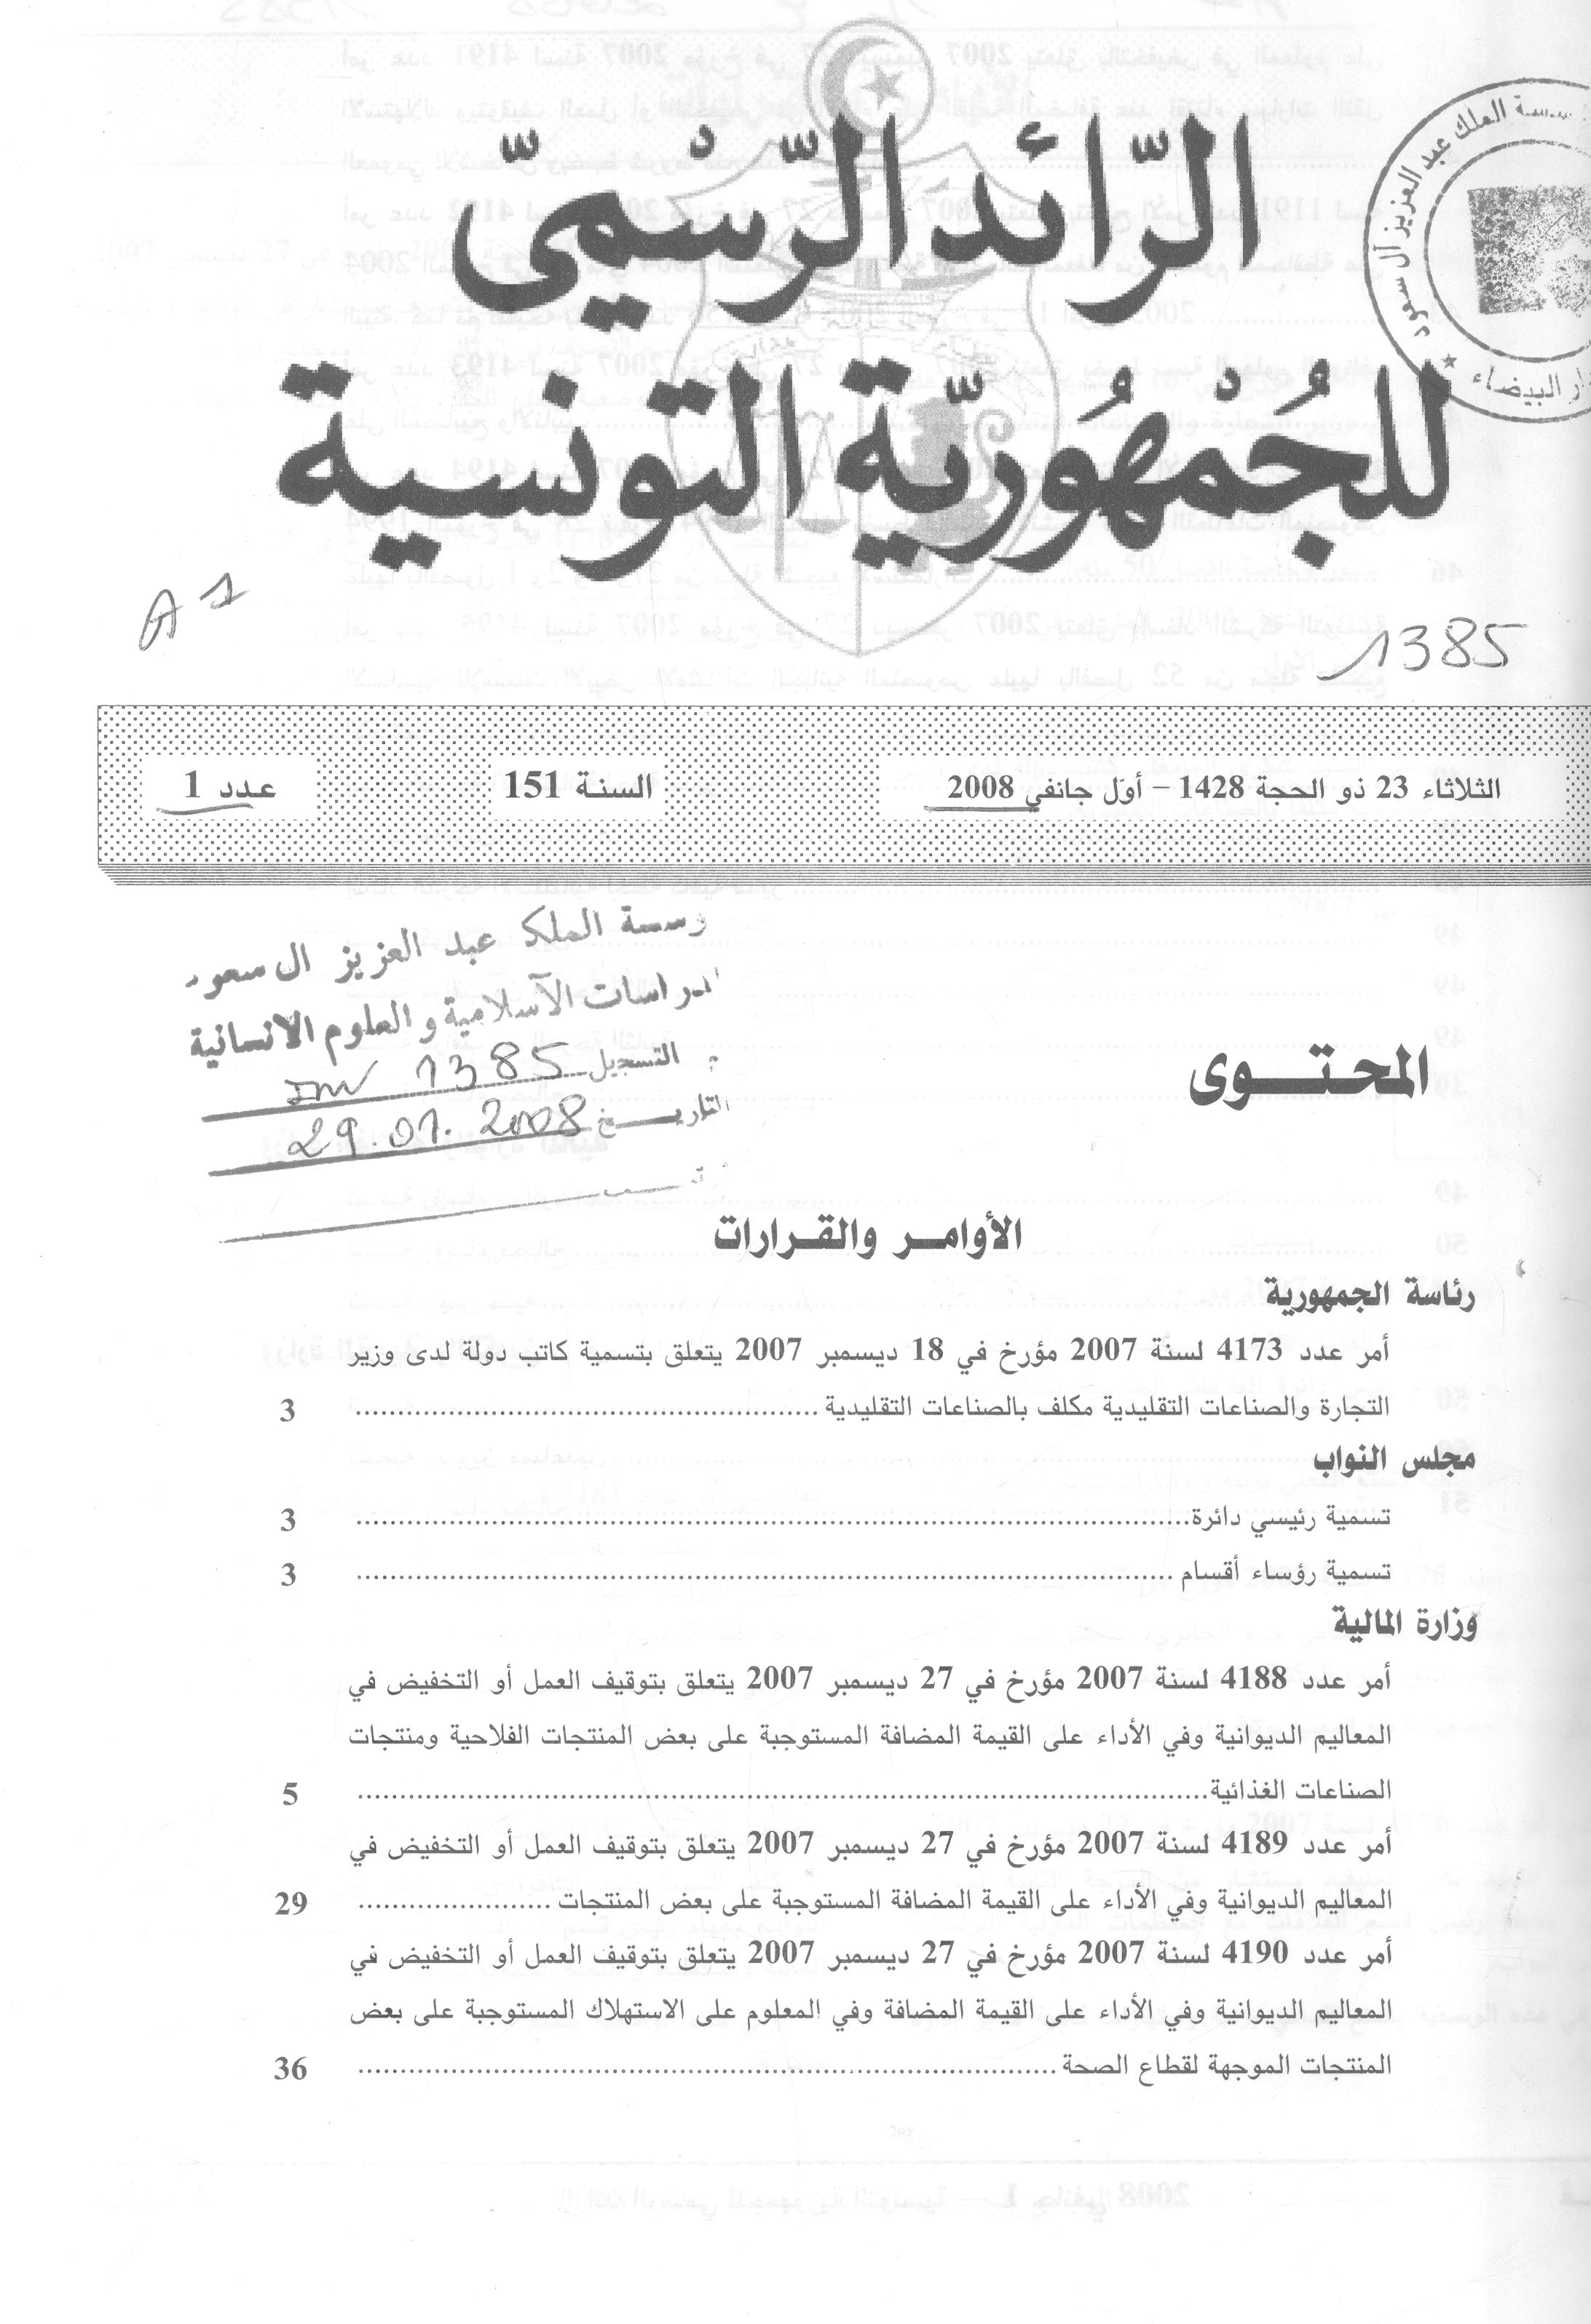 الرّائد الرّسْميّ
للجُمْهُوريّة التونسية
A 1
1385
الثلاثاء 23 ذو الحجة 1428 – أوّل جانفي 2008
السنة 151
عدد 1
الملك عبد العزيز آل سعود
البيضاء
الملك عبد العزيز ال سعود
الآسلامية والعلوم الانسانية
التسجيل 1385
التاريخ 29.01.2008
المحتوى
الأوامر والقرارات
رئاسة الجمهورية
أمر عدد 4173 لسنة 2007 مؤرخ في 18 ديسمبر 2007 يتعلق بتسمية كاتب دولة لدى وزير
التجارة والصناعات التقليدية مكلف بالصناعات التقليدية ........ 3
مجلس النواب
تسمية رئيسي دائرة........ 3
تسمية رؤساء أقسام ........ 3
وزارة المالية
أمر عدد 4188 لسنة 2007 مؤرخ في 27 ديسمبر 2007 يتعلق بتوقيف العمل أو التخفيض في
المعاليم الديوانية وفي الأداء على القيمة المضافة المستوجبة على بعض المنتجات الفلاحية ومنتجات
الصناعات الغذائية........ 5
أمر عدد 4189 لسنة 2007 مؤرخ في 27 ديسمبر 2007 يتعلق بتوقيف العمل أو التخفيض في
المعاليم الديوانية وفي الأداء على القيمة المضافة المستوجبة على بعض المنتجات ........ 29
أمر عدد 4190 لسنة 2007 مؤرخ في 27 ديسمبر 2007 يتعلق بتوقيف العمل أو التخفيض في
المعاليم الديوانية وفي الأداء على القيمة المضافة وفي المعلوم على الاستهلاك المستوجبة على بعض
المنتجات الموجهة لقطاع الصحة ........ 36